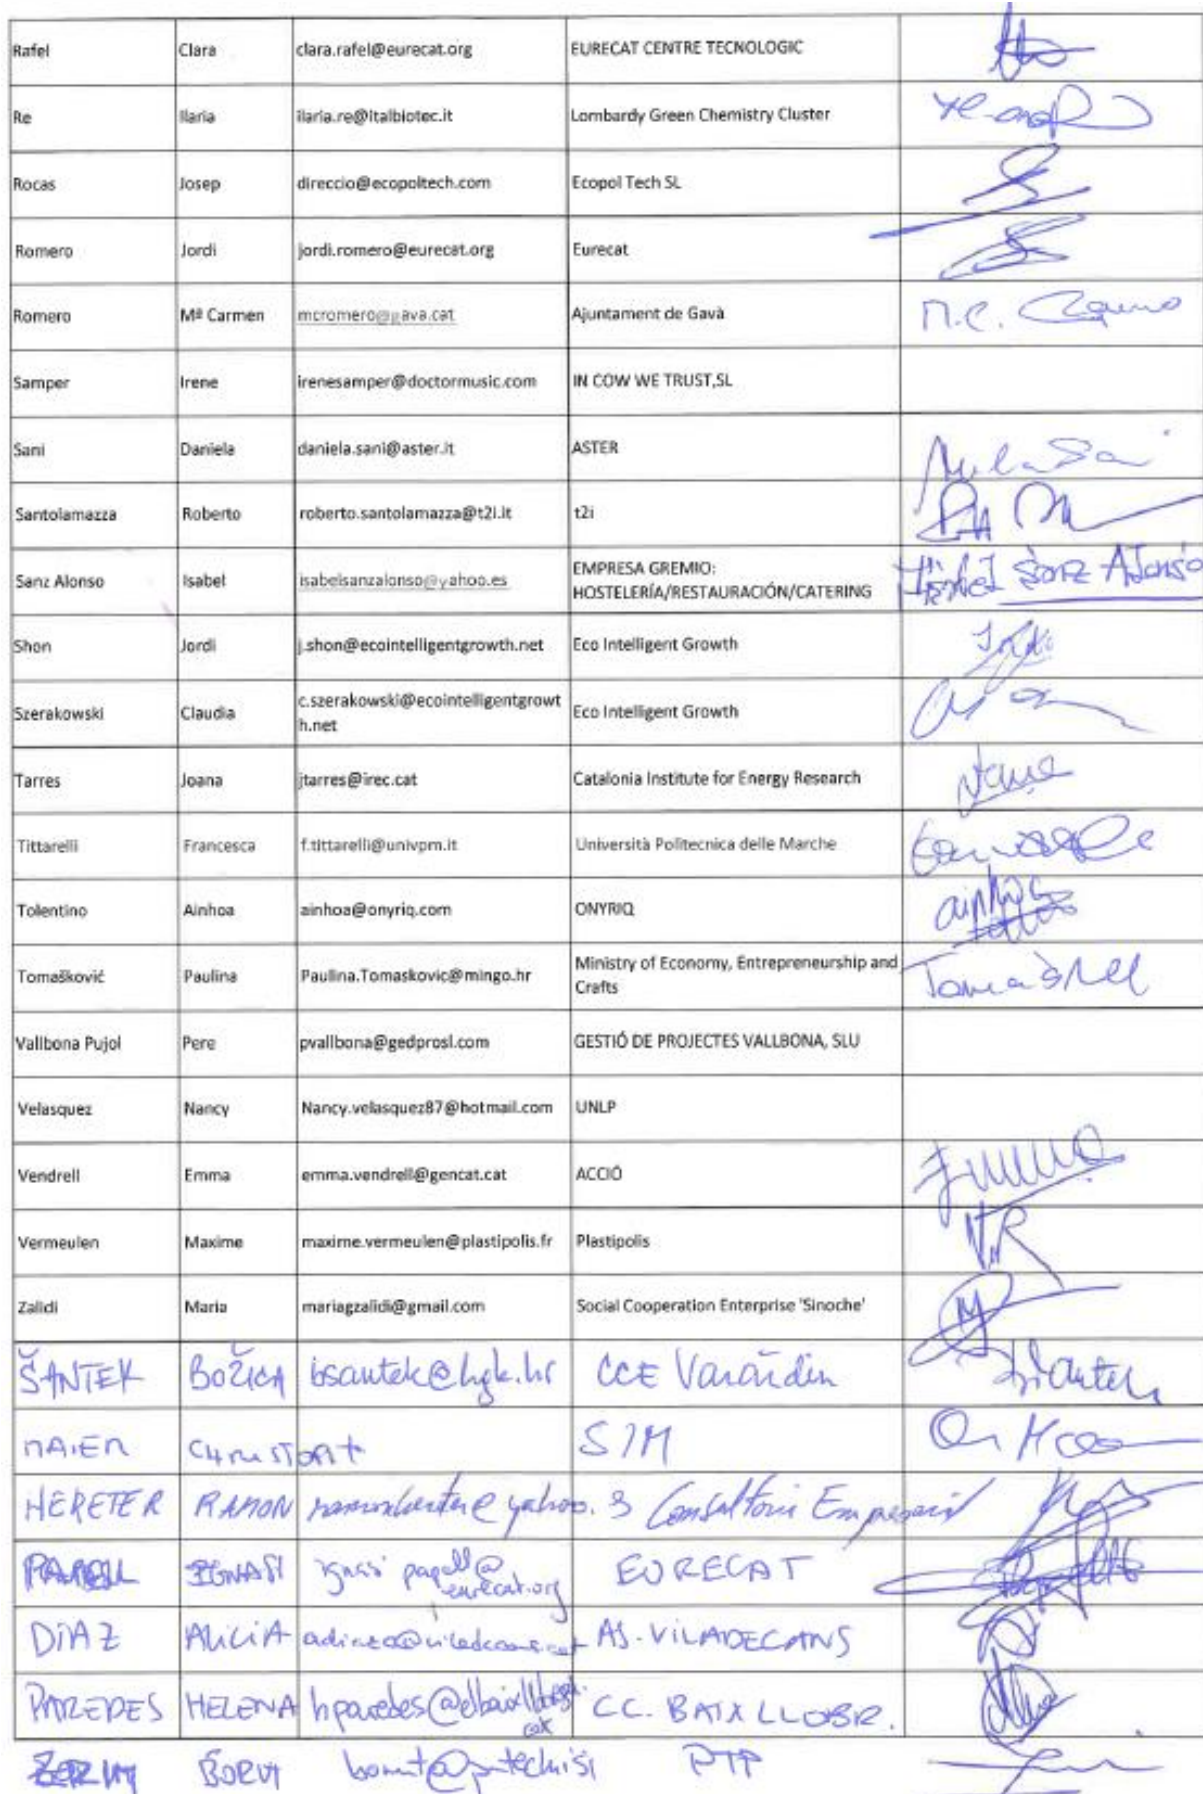 Rafel Clara clara.rafel@eurecat.org EURECAT CENTRE TECNOLOGIC
Re Ilaria ilaria.re@italbiotec.it Lombardy Green Chemistry Cluster
Rocas Josep direccio@ecopoltech.com Ecopol Tech SL
Romero Jordi jordi.romero@eurecat.org Eurecat
Romero Mª Carmen mcromero@gava.cat Ajuntament de Gavà M.C.
Samper Irene irenesamper@doctormusic.com IN COW WE TRUST,SL
Sani Daniela daniela.sani@aster.it ASTER
Santolamazza Roberto roberto.santolamazza@t2i.it t2i
Sanz Alonso Isabel isabelsanzalonso@yahoo.es EMPRESA GREMIO:
HOSTELERÍA/RESTAURACIÓN/CATERING Isabel Sanz Alonso
Shon Jordi j.shon@ecointelligentgrowth.net Eco Intelligent Growth
Szerakowski Claudia c.szerakowski@ecointelligentgrowt
h.net Eco Intelligent Growth
Tarres Joana jtarres@irec.cat Catalonia Institute for Energy Research
Tittarelli Francesca f.tittarelli@univpm.it Università Politecnica delle Marche
Tolentino Ainhoa ainhoa@onyriq.com ONYRIQ ainhoa
Tomašković Paulina Paulina.Tomaskovic@mingo.hr Ministry of Economy, Entrepreneurship and
Crafts
Vallbona Pujol Pere pvallbona@gedprosl.com GESTIÓ DE PROJECTES VALLBONA, SLU
Velasquez Nancy Nancy.velasquez87@hotmail.com UNLP
Vendrell Emma emma.vendrell@gencat.cat ACCIÓ Emma
Vermeulen Maxime maxime.vermeulen@plastipolis.fr Plastipolis
Zalidi Maria mariagzalidi@gmail.com Social Cooperation Enterprise 'Sinoche'
ŠANTEK BOŽICA bsantek@hgk.hr CCE Varaždin
MAIER
HERETER RAMON
IGNASI ignasi papell@
eurecat.org EURECAT
DIAZ ALICIA AJ. VILADECANS
PAREDES HELENA CC. BAIX LLOBR.
BORUT PTP